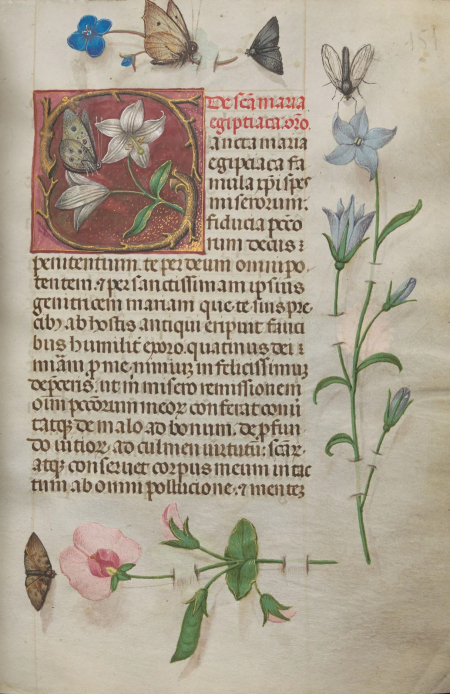 De scã maria
egiptiaca. oro.
ancta maria
egipciaca fa
mula xp̄i spes
miserorum.
fiducia pecco
rum decus ⁊
penitentium. te per deum omnipo
tentem. ⁊ per sanctissimam ipsius
genitricem mariam que te suis pre
cibꝫ ab hostis antiqui eripuit fauci
bus humiliť exoro. quatinus dei
miãm p me nimium infelicissimus
depceris. ut in misero remissionem
oim peccorum meoꝝ conferat conũ
tatqꝫ de malo ad bonum. de pfun
do uitioꝝ ad culmen uirtutũ:
atqꝫ conseruet corpus meum intac
tum ab omni pollucione. ⁊ mentez
151